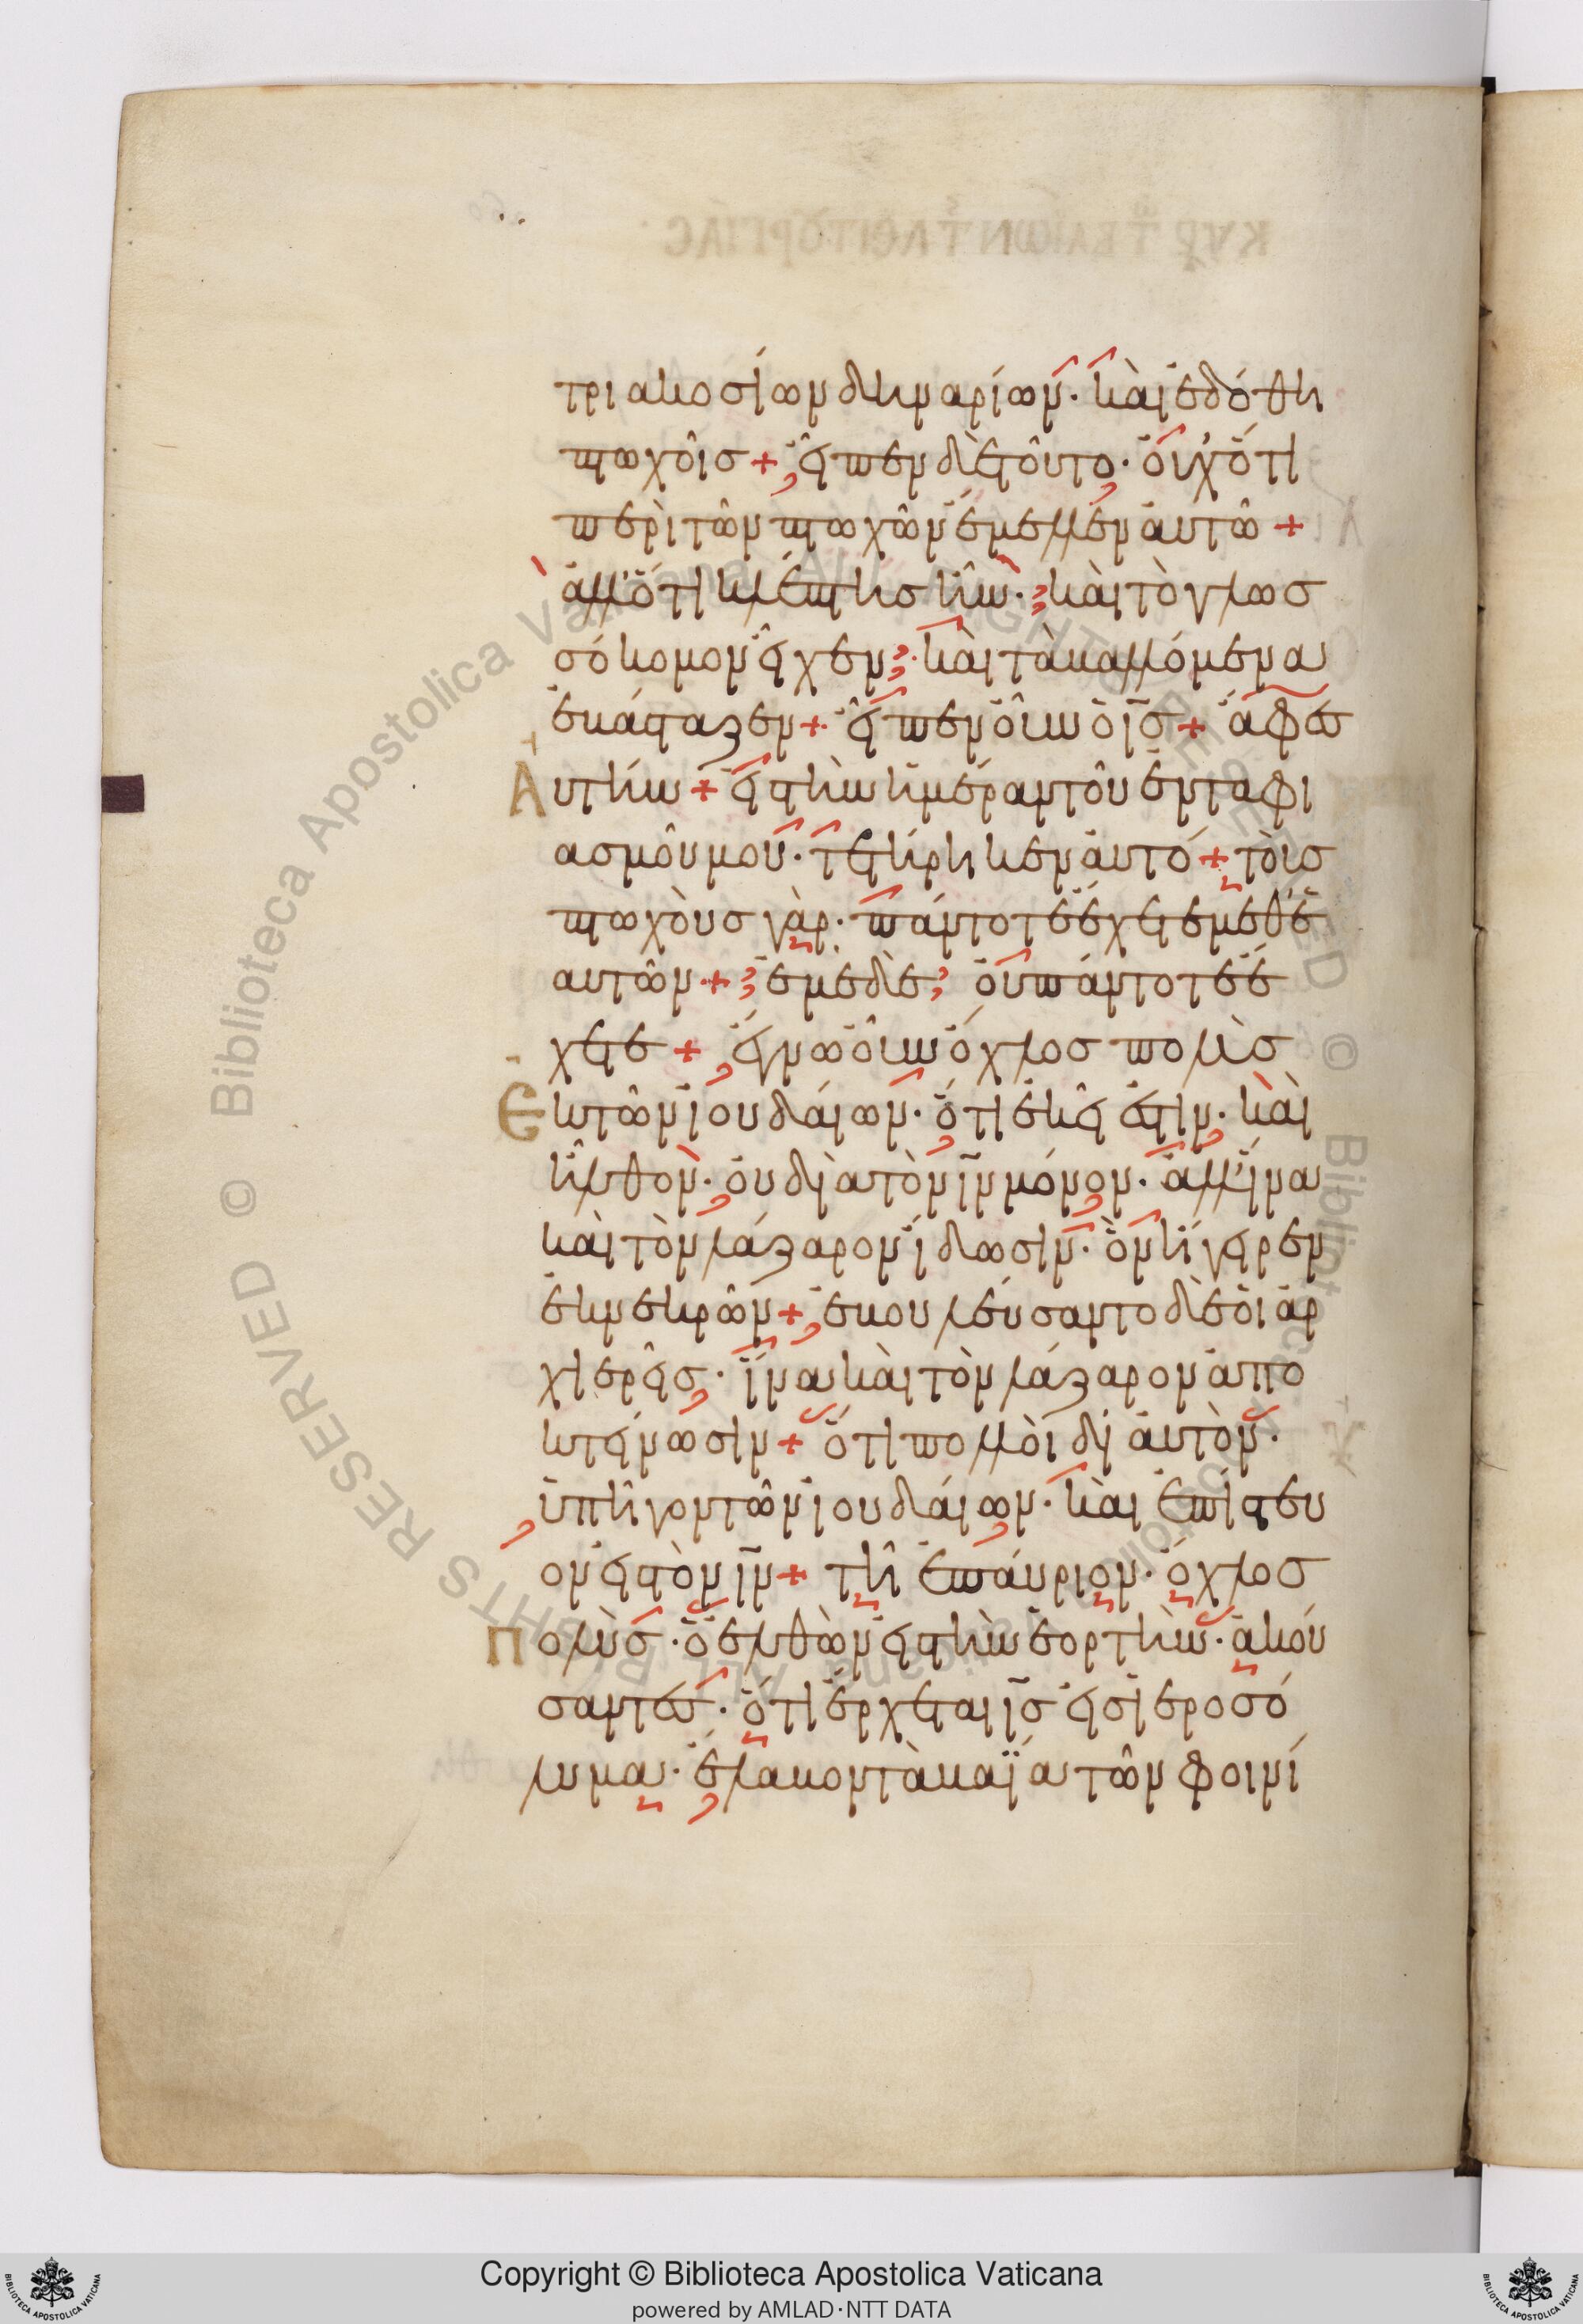 τριακοσίων δηναρίων· καὶ ἐδόθη
πτωχοῖς + εἶπεν δὲ τοῦτο· οὐχ ὅτι
περὶ τῶν πτωχῶν ἔμελλεν αὐτῶ +
ἀλλ' ὅτι κλέπτης ἦν· καὶ τὸ γλωσ
σόκομον εἶχεν· καὶ τὰ βαλλόμενα
ἐβάσταζεν + εἶπεν οὖν ὁ ις + ἄφες
Αὐτήν + εἰς τὴν ἡμέραν τοῦ ἐνταφι
ασμοῦ μου· τετήρηκεν αὐτό + τοὺς
πτωχοὺς γὰρ· πάντοτε ἔχετε μεθ' ἑ
αυτῶν + ἐμὲ δὲ οὐ πάντοτε ἔ
χετε + ἔγνω οὖν ὄχλος πολὺς
Ἐκ τῶν ἰουδαίων· ὅτι ἐκεῖ ἐστιν· καὶ
ἦλθον· οὐ διὰ τὸν ιν μόνον· ἀλλ' ἵνα
καὶ τὸν λάζαρον ἴδωσιν· ὃν ἤγειρεν
ἐκ νεκρῶν + ἐβουλεύσαντο δὲ οἱ ἀρ
χιερεῖς· ἵνα καὶ τὸν λάζαρον ἀπο
κτείνωσιν + ὅτι πολλοὶ δι αὐτὸν·
ὑπῆγον τῶν ἰουδαίων· καὶ ἐπίστευ
ον εἰς τὸν ιν + τῆ ἐπάυριον· ὄχλος
Πολὺς· ὁ ἐλθὼν εἰς τὴν ἑορτὴν· ἀκού
σαντες· ὅτι ἔρχεται ις εἰς ἱεροσό
λυμα· ἔλαβον τὰ βαΐα τῶν φοινί
Copyright © Biblioteca Apostolica Vaticana
powered by AMLAD·NTT DATA